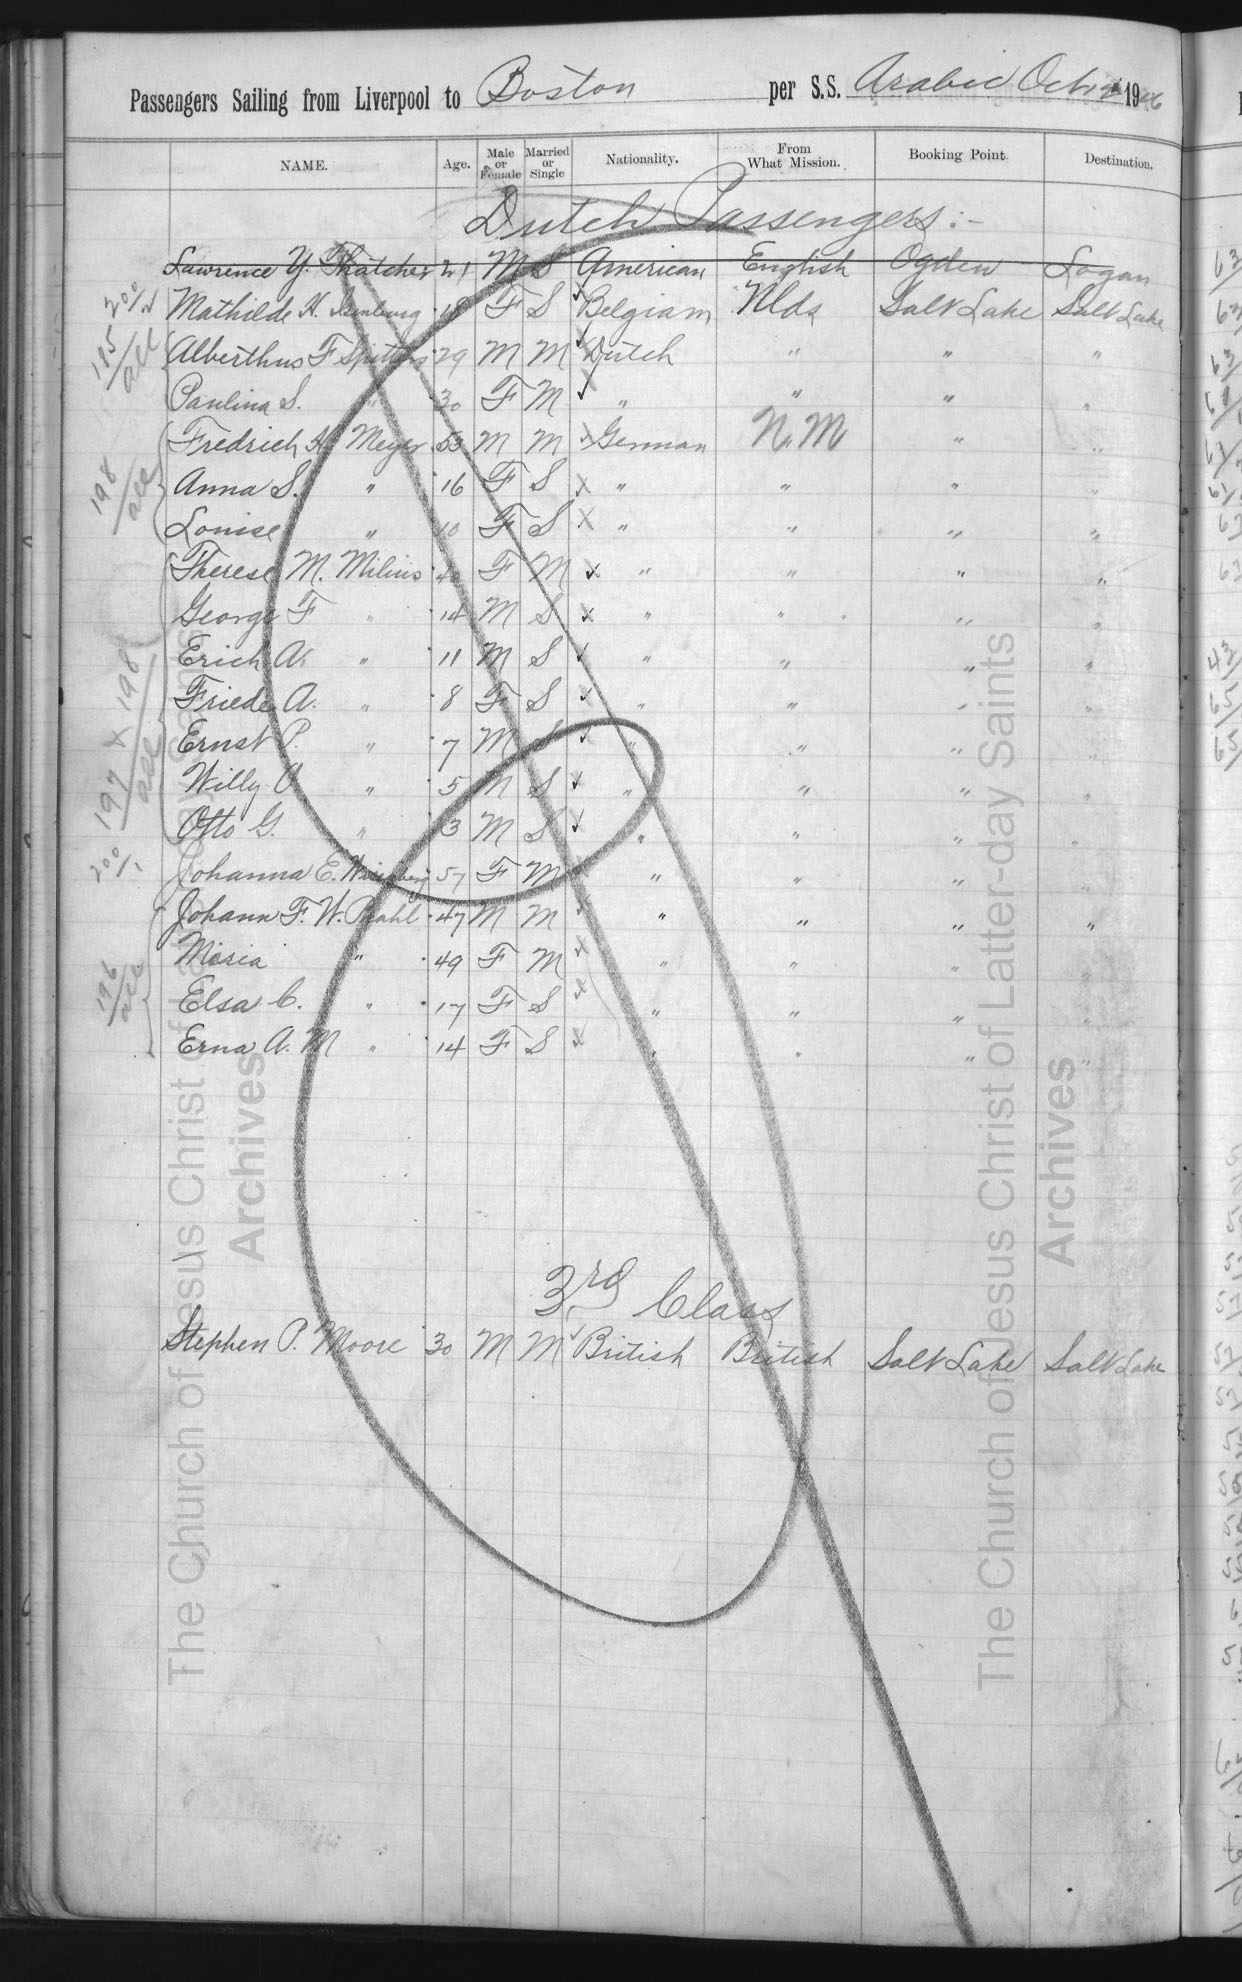 Passengers Sailing from Liverpool to Boston per S.S. Arabic Oct 1906
NAME. Age. Male or Female Married or Single Nationality. From What Mission. Booking Point. Destination.
Dutch Passengers:-
Lawrence Y. Thatcher 21 M S American English Ogden Logan
200/1 Mathilde H. 18 F S Belgian Nlds Salt Lake Salt Lake
195/all Alberthus F Spitters 29 M M Dutch " " "
Paulina S. " 30 F M " " " "
Fredrich H. Meyer 53 M M German N.M " "
198/all Anna S. " 16 F S " " " "
Louise " 10 F S " " " "
Therese M. Milius 40 F M " " " "
George F " 14 M S " " " "
Erich A. " 11 M S " " " "
Friede A. " 8 F S " " " "
Ernst P. " 7 M S " " " "
197 & 198/all Willy O " 5 M S " " " "
Otto G. " 3 M S " " " "
200/1 Johanna E. 57 F M " " " "
Johann F. W. Prahl 47 M M " " " "
Maria " 49 F M " " " "
196/all Elsa C. " 17 F S " " " "
Erna A. M " 14 F S " " " "
3rd Class
Stephen P. Moore 30 M M British British Salt Lake Salt Lake
The Church of Jesus Christ of Latter-day Saints
Archives
The Church of Jesus Christ of Latter-day Saints
Archives